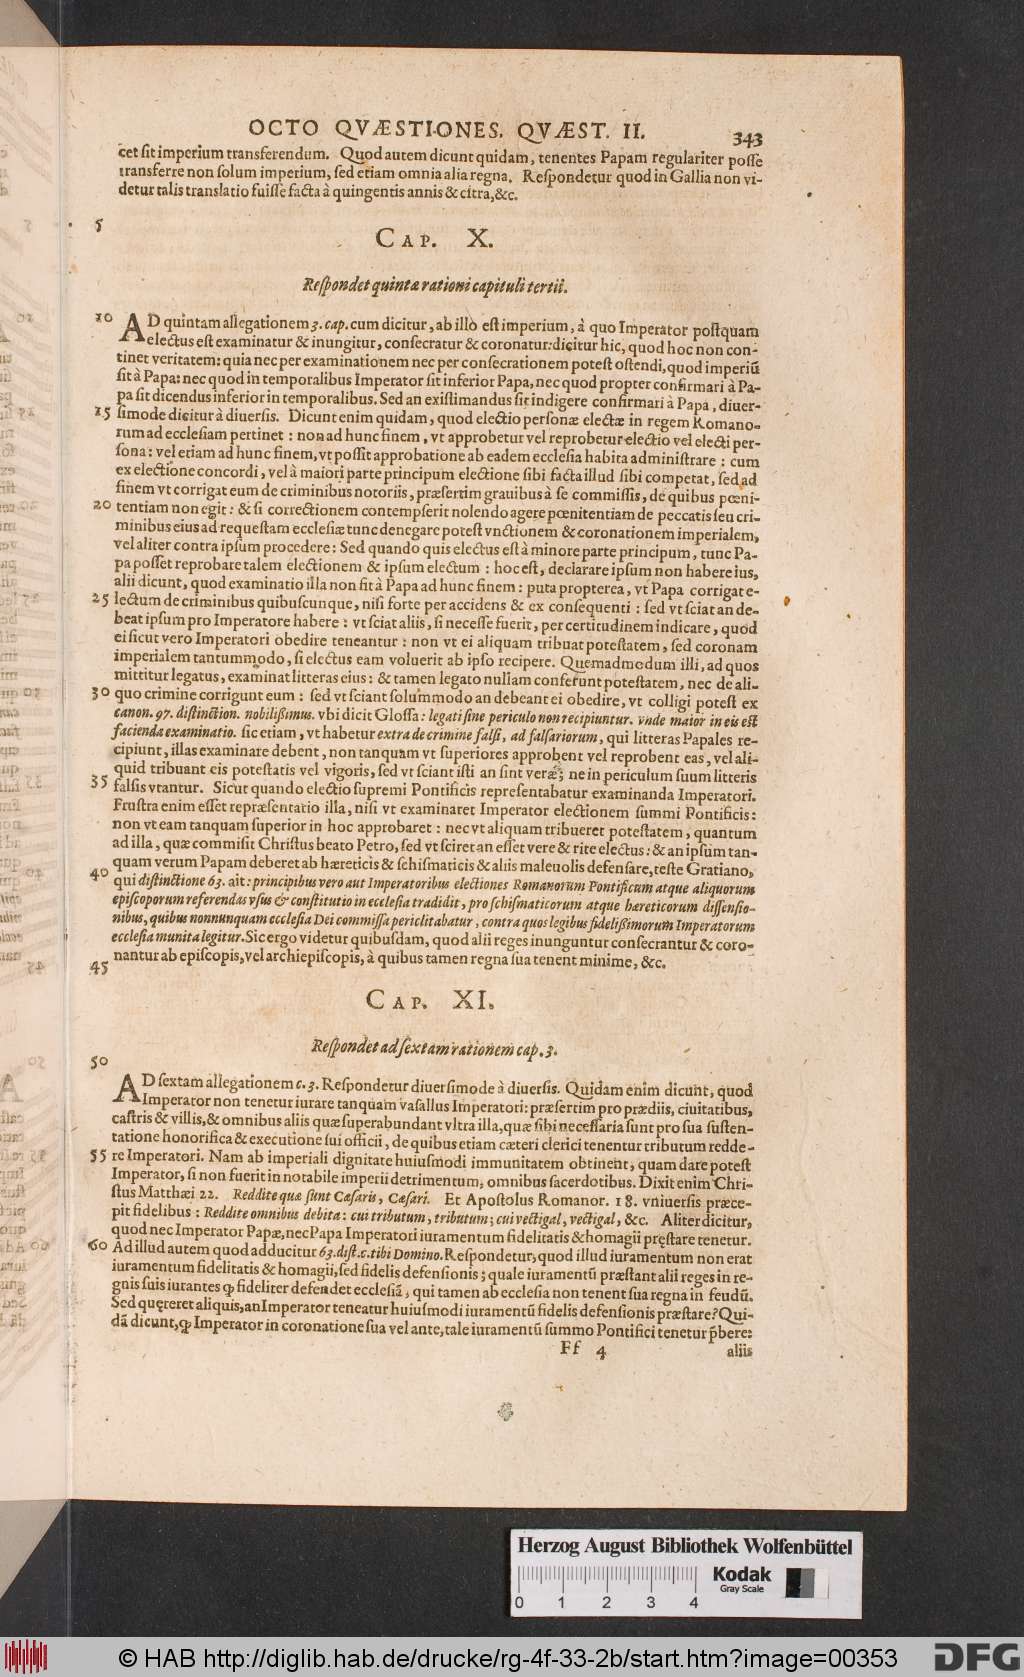 OCTO QVÆSTIONES. QVÆST. II. 343
cet sit imperium transferendum. Quod autem dicunt quidam, tenentes Papam regulariter posse
transferre non solum imperium, sed etiam omnia alia regna. Respondetur quod in Gallia non vi-
detur talis translatio fuisse facta à quingentis annis & citra, &c.
5
CAP. X.
Respondet quintæ rationi capituli tertii.
10 AD quintam allegationem 3. cap. cum dicitur, ab illo est imperium, à quo Imperator postquam
electus est examinatur & inungitur, consecratur & coronatur: dicitur hic, quod hoc non con-
tinet veritatem: quia nec per examinationem nec per consecrationem potest ostendi, quod imperiũ
sit à Papa: nec quod in temporalibus Imperator sit inferior Papa, nec quod propter confirmari à Pa-
pa sit dicendus inferior in temporalibus. Sed an existimandus sit indigere confirmari à Papa, diuer-
15 simode dicitur à diuersis. Dicunt enim quidam, quod electio personæ electæ in regem Romano-
rum ad ecclesiam pertinet: non ad hunc finem, vt approbetur vel reprobetur electio vel electi per-
sona: vel etiam ad hunc finem, vt possit approbatione ab eadem ecclesia habita administrare: cum
ex electione concordi, vel à maiori parte principum electione sibi facta illud sibi competat, sed ad
finem vt corrigat eum de criminibus notoriis, præsertim grauibus à se commissis, de quibus pœni-
20 tentiam non egit: & si correctionem contempserit nolendo agere pœnitentiam de peccatis seu cri-
minibus eius ad requestam ecclesiæ tunc denegare potest vnctionem & coronationem imperialem,
vel aliter contra ipsum procedere: Sed quando quis electus est à minore parte principum, tunc Pa-
pa posset reprobare talem electionem & ipsum electum: hoc est, declarare ipsum non habere ius,
alii dicunt, quod examinatio illa non fit à Papa ad hunc finem: puta propterea, vt Papa corrigat e-
25 lectum de criminibus quibuscunque, nisi forte per accidens & ex consequenti: sed vt sciat an de-
beat ipsum pro Imperatore habere: vt sciat aliis, si necesse fuerit, per certitudinem indicare, quod
ei sicut vero Imperatori obedire teneantur: non vt ei aliquam tribuat potestatem, sed coronam
imperialem tantummodo, si electus eam voluerit ab ipso recipere. Quemadmodum illi, ad quos
mittitur legatus, examinat litteras eius: & tamen legato nullam conferunt potestatem, nec de ali-
30 quo crimine corrigunt eum: sed vt sciant solummodo an debeant ei obedire, vt colligi potest ex
canon. 97. distinction. nobilißimus. vbi dicit Glossa: legati sine periculo non recipiuntur. vnde maior in eis est
facienda examinatio. sic etiam, vt habetur extra de crimine falsi, ad falsariorum, qui litteras Papales re-
cipiunt, illas examinare debent, non tanquam vt superiores approbent vel reprobent eas, vel ali-
quid tribuant eis potestatis vel vigoris, sed vt sciant isti an sint veræ; ne in periculum suum litteris
35 falsis vtantur. Sicut quando electio supremi Pontificis representabatur examinanda Imperatori.
Frustra enim esset repræsentatio illa, nisi vt examinaret Imperator electionem summi Pontificis:
non vt eam tanquam superior in hoc approbaret: nec vt aliquam tribueret potestatem, quantum
ad illa, quæ commisit Christus beato Petro, sed vt sciret an esset vere & rite electus: & an ipsum tan-
quam verum Papam deberet ab hæreticis & schismaticis & aliis maleuolis defensare, teste Gratiano,
40 qui distinctione 63. ait: principibus vero aut Imperatoribus electiones Romanorum Pontificum atque aliquorum
episcoporum referendas vsus & constitutio in ecclesia tradidit, pro schismaticorum atque hæreticorum dissensio-
nibus, quibus nonnunquam ecclesia Dei commissa periclitabatur, contra quos legibus fidelißimorum Imperatorum
ecclesia munita legitur. Sic ergo videtur quibusdam, quod alii reges inunguntur consecrantur & coro-
nantur ab episcopis, vel archiepiscopis, à quibus tamen regna sua tenent minime, &c.
45
CAP. XI.
Respondet ad sextam rationem cap. 3.
50
AD sextam allegationem c. 3. Respondetur diuersimode à diuersis. Quidam enim dicunt, quod
Imperator non tenetur iurare tanquam vasallus Imperatori: præsertim pro prædiis, ciuitatibus,
castris & villis, & omnibus aliis quæ superabundant vltra illa, quæ sibi necessaria sunt pro sua susten-
tatione honorifica & executione sui officii, de quibus etiam cæteri clerici tenentur tributum redde-
55 re Imperatori. Nam ab imperiali dignitate huiusmodi immunitatem obtinent, quam dare potest
Imperator, si non fuerit in notabile imperii detrimentum, omnibus sacerdotibus. Dixit enim Chri-
stus Matthæi 22. Reddite quæ sunt Cæsaris, Cæsari. Et Apostolus Romanor. 18. vniuersis præce-
pit fidelibus: Reddite omnibus debita: cui tributum, tributum; cui vectigal, vectigal, &c. Aliter dicitur,
quod nec Imperator Papæ, nec Papa Imperatori iuramentum fidelitatis & homagii pręstare tenetur.
60 Ad illud autem quod adducitur 63. dist. c. tibi Domino. Respondetur, quod illud iuramentum non erat
iuramentum fidelitatis & homagii, sed fidelis defensionis; quale iuramentũ præstant alii reges in re-
gnis suis iurantes ꝙ fideliter defendet ecclesiã, qui tamen ab ecclesia non tenent sua regna in feudũ.
Sed quęreret aliquis, an Imperator teneatur huiusmodi iuramentũ fidelis defensionis præstare? Qui-
dã dicunt, ꝙ Imperator in coronatione sua vel ante, tale iuramentũ summo Pontifici tenetur p̄bere:
Ff 4 aliis
Herzog August Bibliothek Wolfenbüttel
Kodak
Gray Scale
0 1 2 3 4
© HAB http://diglib.hab.de/drucke/rg-4f-33-2b/start.htm?image=00353
DFG